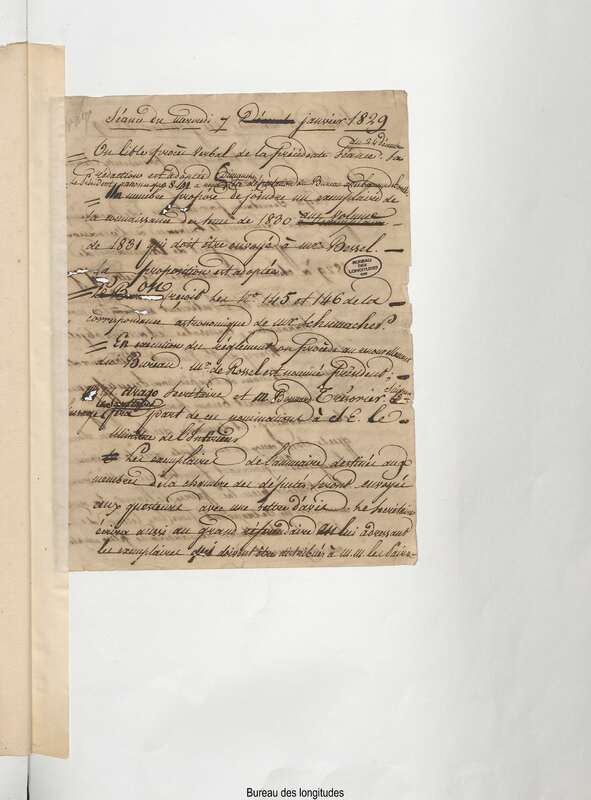 Séance du mercredi 7 Décemb janvier 1829
du 24 Décemb
On lit le procès verbal de la précédente séance. Sa
rédaction est adoptée
Le Président annonce que S. M. a reçu la députation du Bureau
Un membre propose de joindre un exemplaire de
la connaissance des tems de 1830 au volume
de 1831 qui doit être envoyé à mr. Bessel.
La proposition est adoptée
On reçoit les Nos 145 et 146 de la
correspondance astronomique de mr Schumacher
En exécution du règlement on procède au renouvellement
du Bureau. Mr. de Rossel est nommé Président
mr arago Secrétaire et m. Bouvard Trésorier
fera part de ces nominations à S. E. le
Ministre de l'Intérieur
Les exemplaires de l'annuaire destinés aux
membres de la chambre des députés seront envoyés
aux questeurs avec une lettre d'avis. Le Secrétaire
écrira aussi au grand référendaire en lui adressant
les exemplaires qui doivent être distribués à M.M. les Pairs
BUREAU DES LONGITUDES
Bureau des longitudes